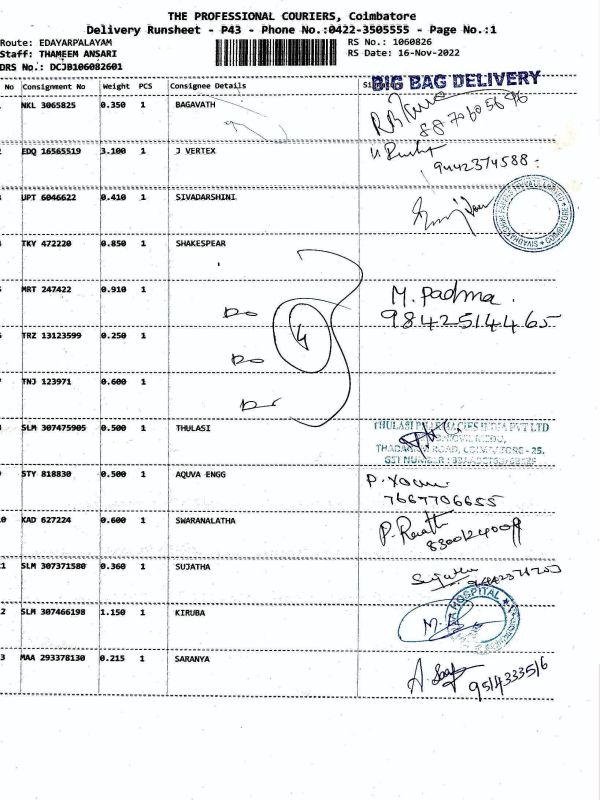 THE PROFESSIONAL COURIERS, Coimbatore
Delivery Runsheet - P43 - Phone No.:0422-3505555 - Page No.:1
Route: EDAYARPALAYAM RS No.: 1060826
Staff: THAMEEM ANSARI RS Date: 16-Nov-2022
DRS No.: DCJB106082601
BIG BAG DELIVERY
No Consignment No Weight PCS Consignee Details
NKL 3065825 0.350 1 BAGAVATH
88 70605696
EDQ 16565519 3.100 1 J VERTEX
9442374588
UPT 6046622 0.410 1 SIVADARSHINI
COIMBATORE
TKY 472220 0.850 1 SHAKESPEAR
MRT 247422 0.910 1 M. Padma.
9842514465
Do
4
TRZ 13123599 0.250 1
Do
TNJ 123971 0.600 1
Do
SLM 307475905 0.500 1 THULASI
THULASI PHARMACIES INDIA PVT LTD
THADAGAM ROAD, COIMBATORE - 25.
GST NUMBER :
STY 818830 0.500 1 AQUVA ENGG
7667706655
KAD 627224 0.600 1 SWARANALATHA
1 SLM 307371580 0.360 1 SUJATHA
Sujatha
2 SLM 307466198 1.150 1 KIRUBA
HOSPITAL
3 MAA 293378130 0.215 1 SARANYA
9514333516